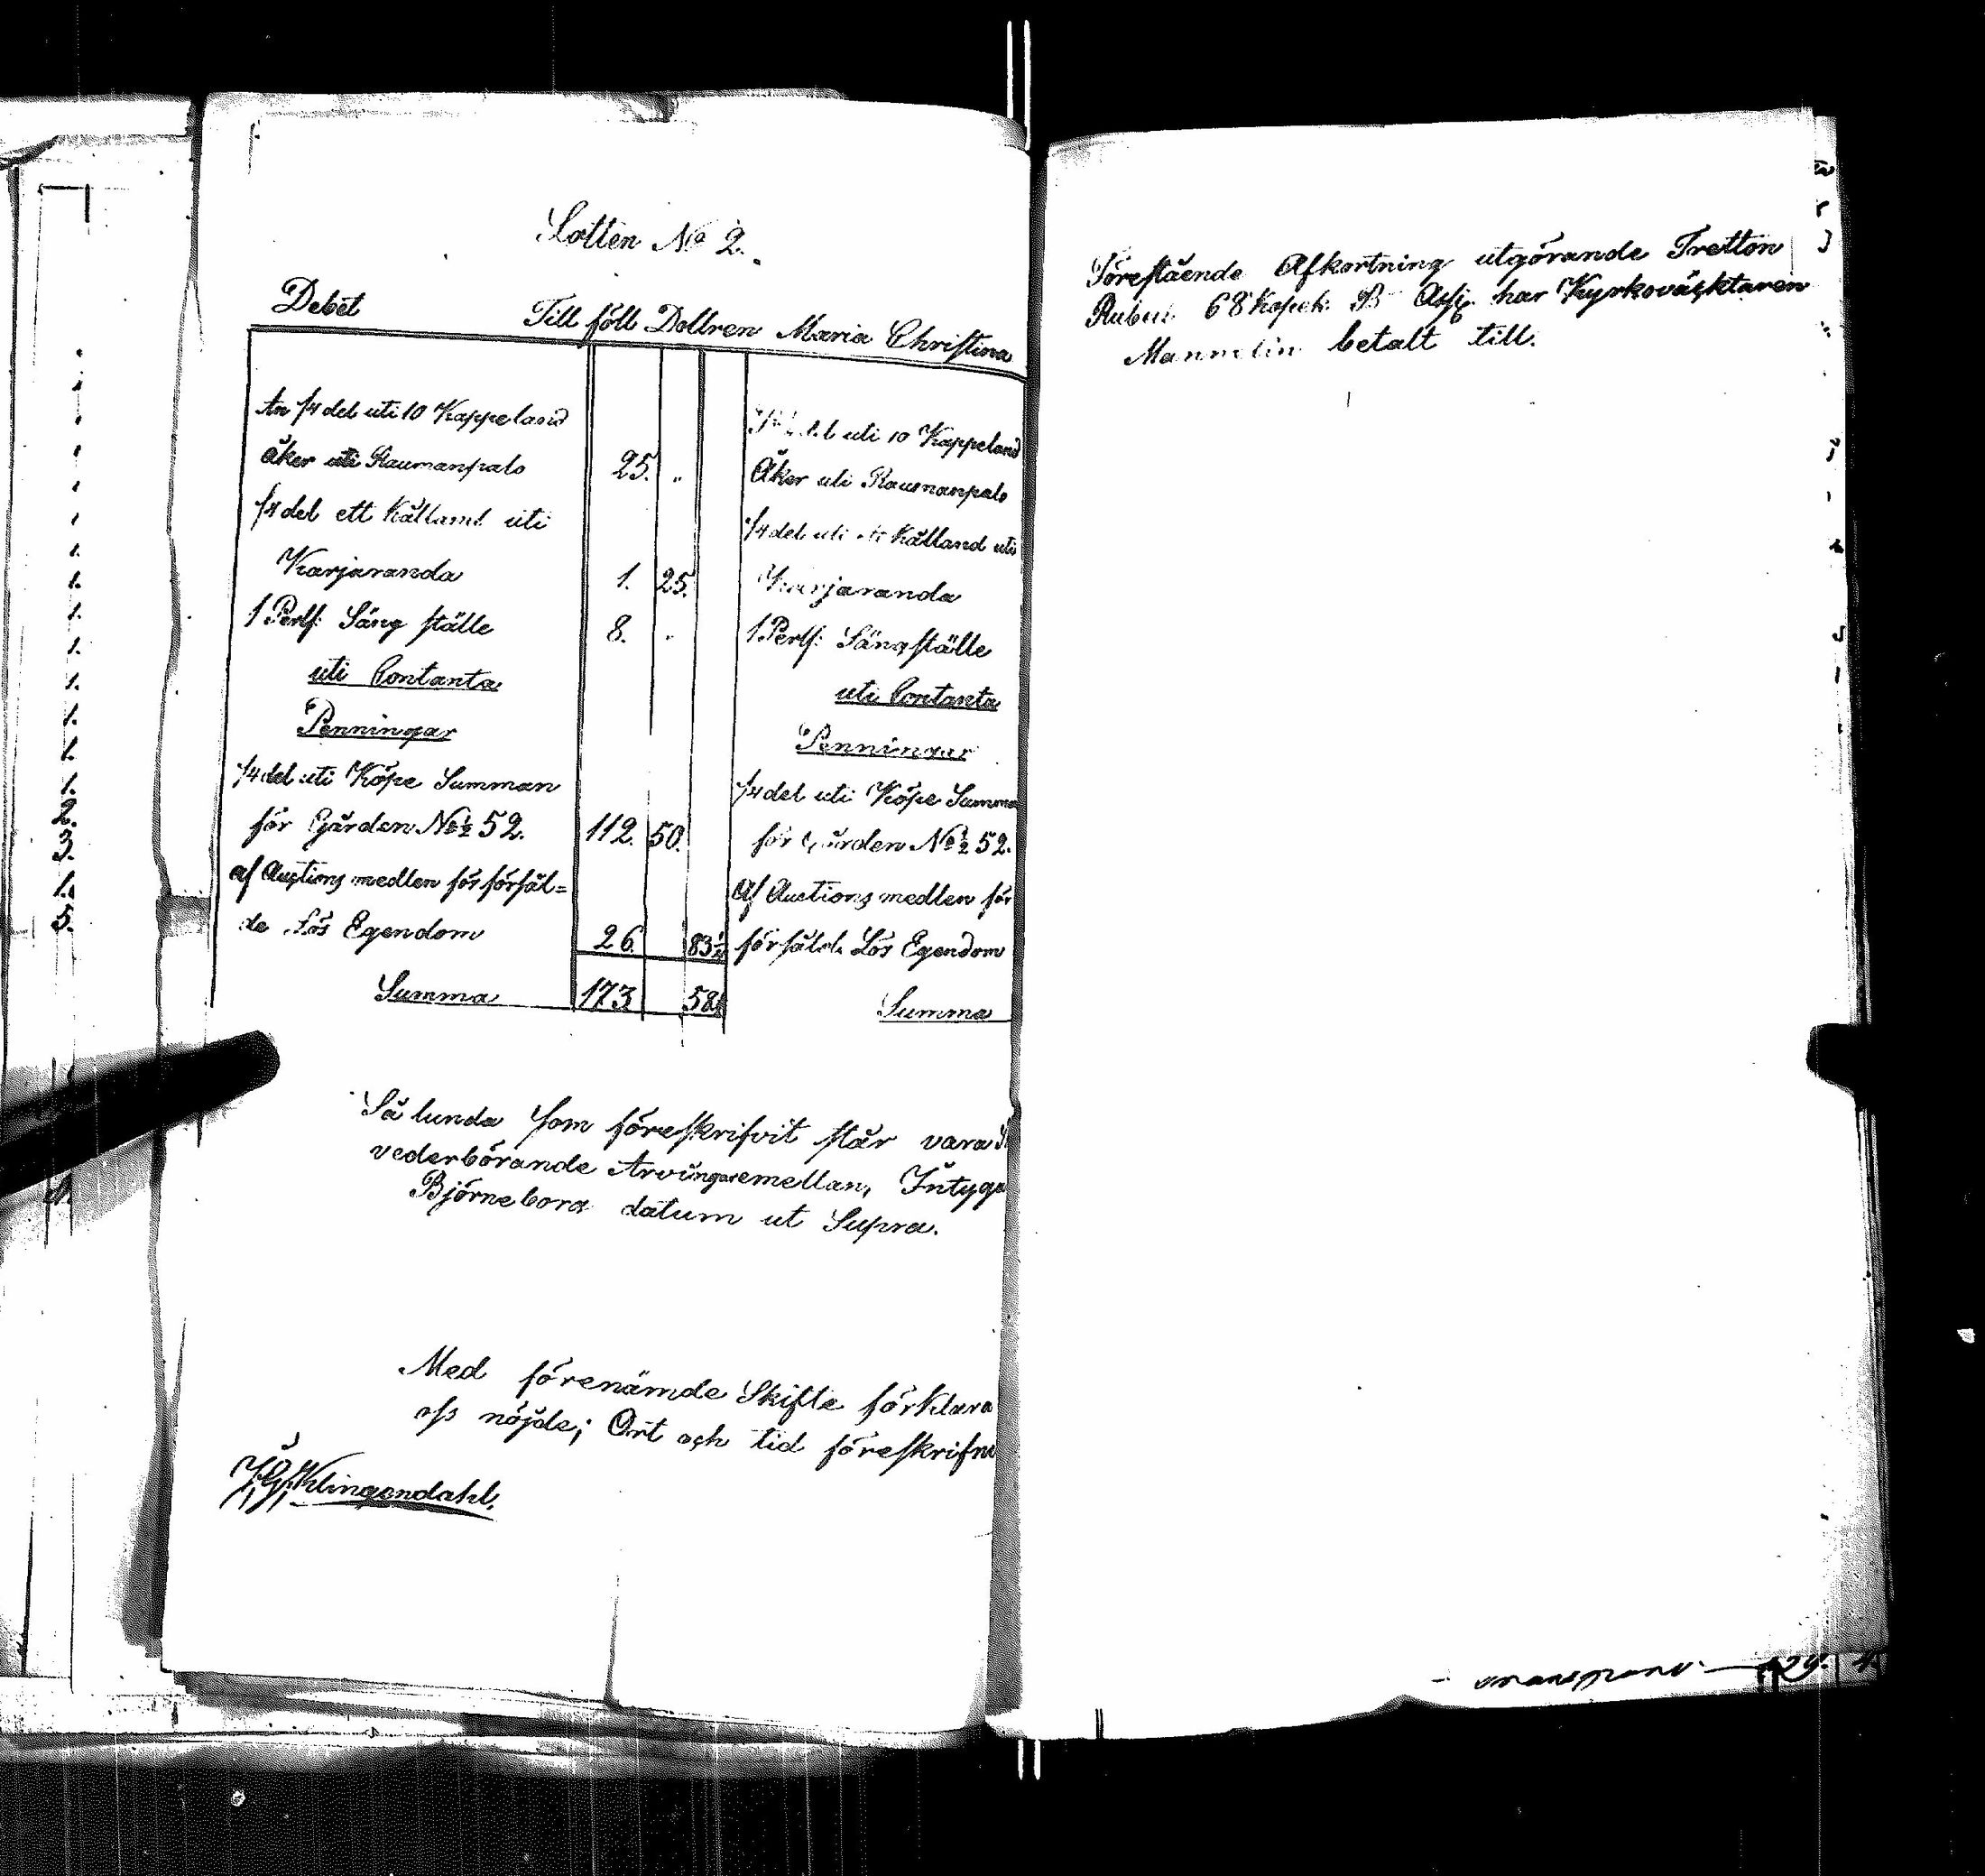 Lotten No 2.
Debet Till föll Dottren Maria Christina
An 1/4 del uti 10 Kappeland
åker uti Raumanpalo 25. "
1/4 del ett Kålland uti
Karjaranda 1. 25.
1 Perls: Säng ställe 8. "
uti Contanta
Penningar
1/4 del uti Köpe Summan
för Gården No 1/2 52. 112. 50.
af Auctions medlen för försål=
de Lös Egendom 26. 83 1/2
Summa 173 58
del uti 10 Kappeland
Åker uti Raumanpalo
1/4 del uti ett Kålland uti
Karjaranda
1 Perls: Sängställe
uti Contanta
Penningar
1/4 del uti Köpe Summa
för Gården No 1/2 52.
Af Auctions medlen för
försåld. Lös Egendom
Summa
Så lunda som föreskrifvit står vara
vederbörande Arvingar emellan, Intyga
Björneborg datum ut Supra.
Med förenämde Skifte förklara
oss nöjde; Ort och tid föreskrifne
J. G. Klingendahl.
Förestående Afkortning utgörande Tretton
Rubel 68 Kopek B Assig. har Kyrkoväcktaren
Mannelin betalt till.
1.
1.
1.
1.
1.
1.
1.
1.
2.
3.
1.
5.